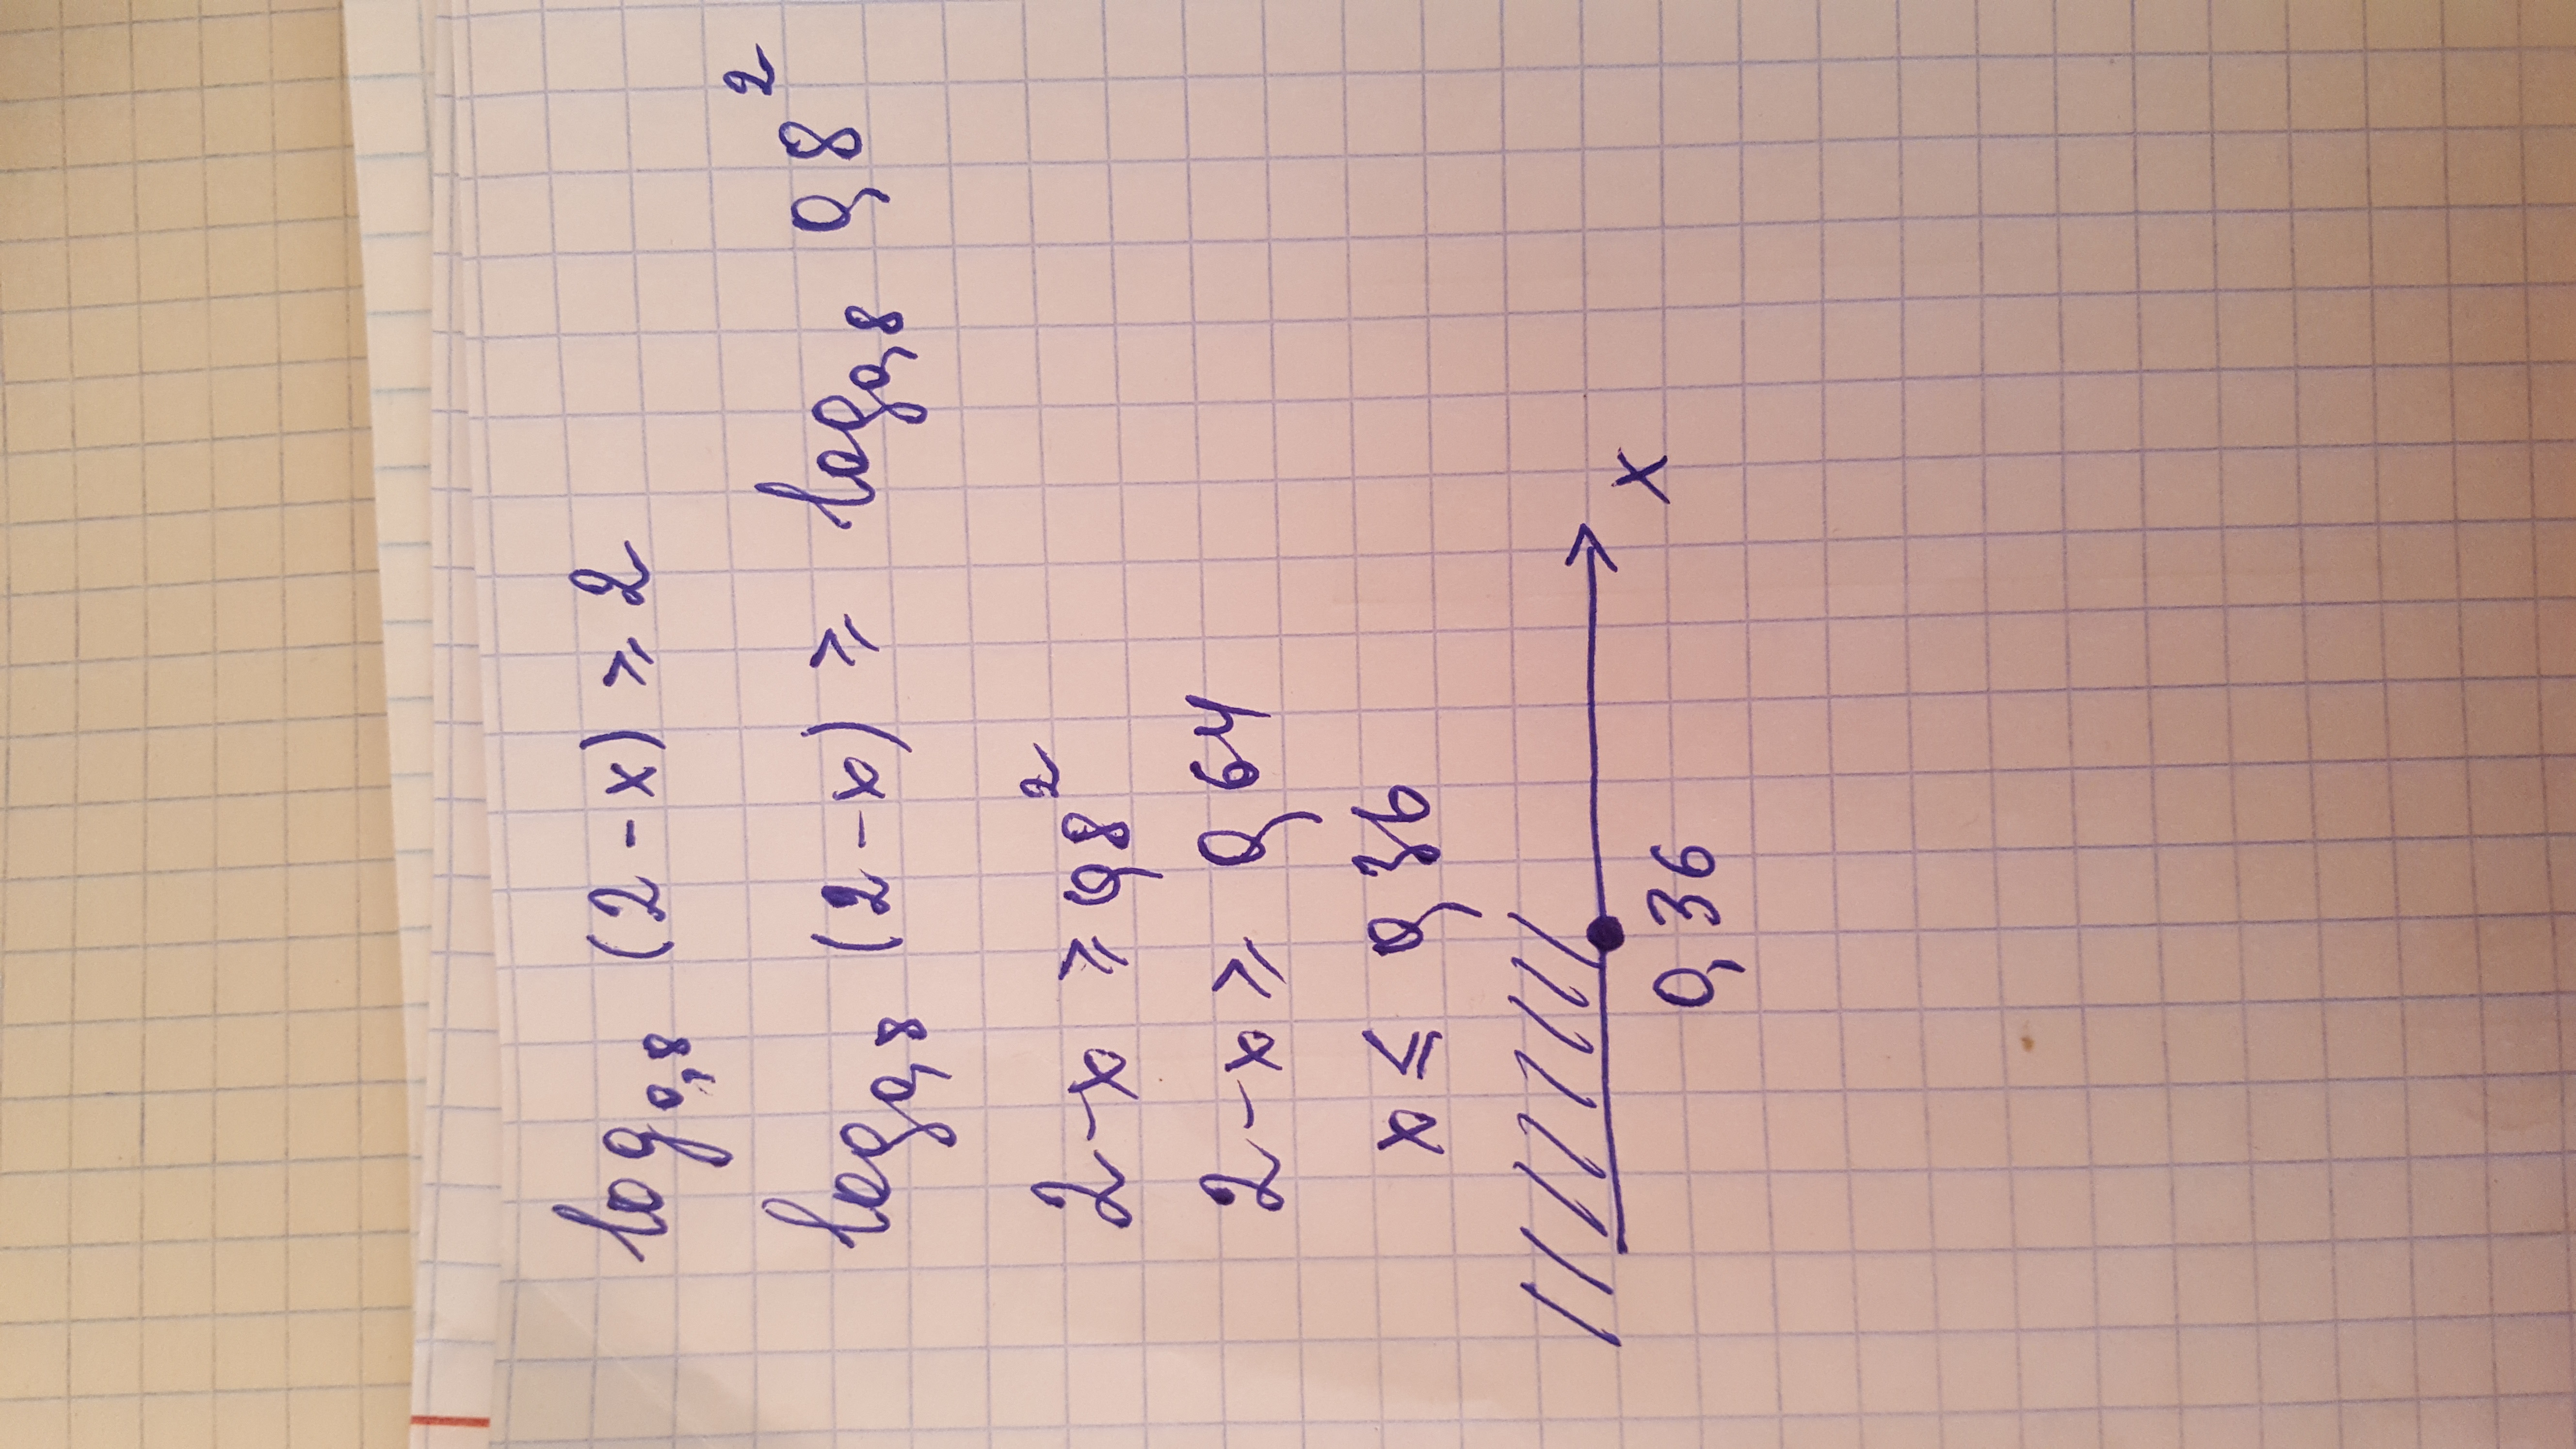 log₀,₈ (2-x) ⩾ 2
log₀,₈ (2-x) ⩾ log₀,₈ 0,8²
2-x ⩾ 0,8²
2-x ⩾ 0,64
x ⩽ 0,36
0,36 x